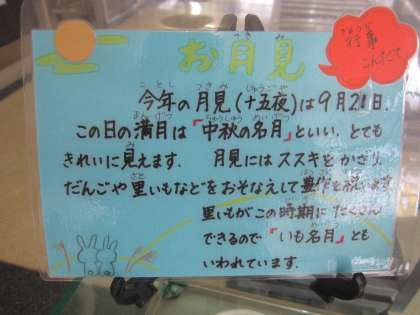 お月見
行事
こんだて
今年の月見(十五夜)は9月21日.
この日の満月は「中秋の名月」といい、とても
きれいに見えます. 月見にはススキをかざり、
だんごや里いもなどをおそなえして豊作を祝います.
里いもがこの時期にたくさん
できるので『いも名月』とも
いわれています.